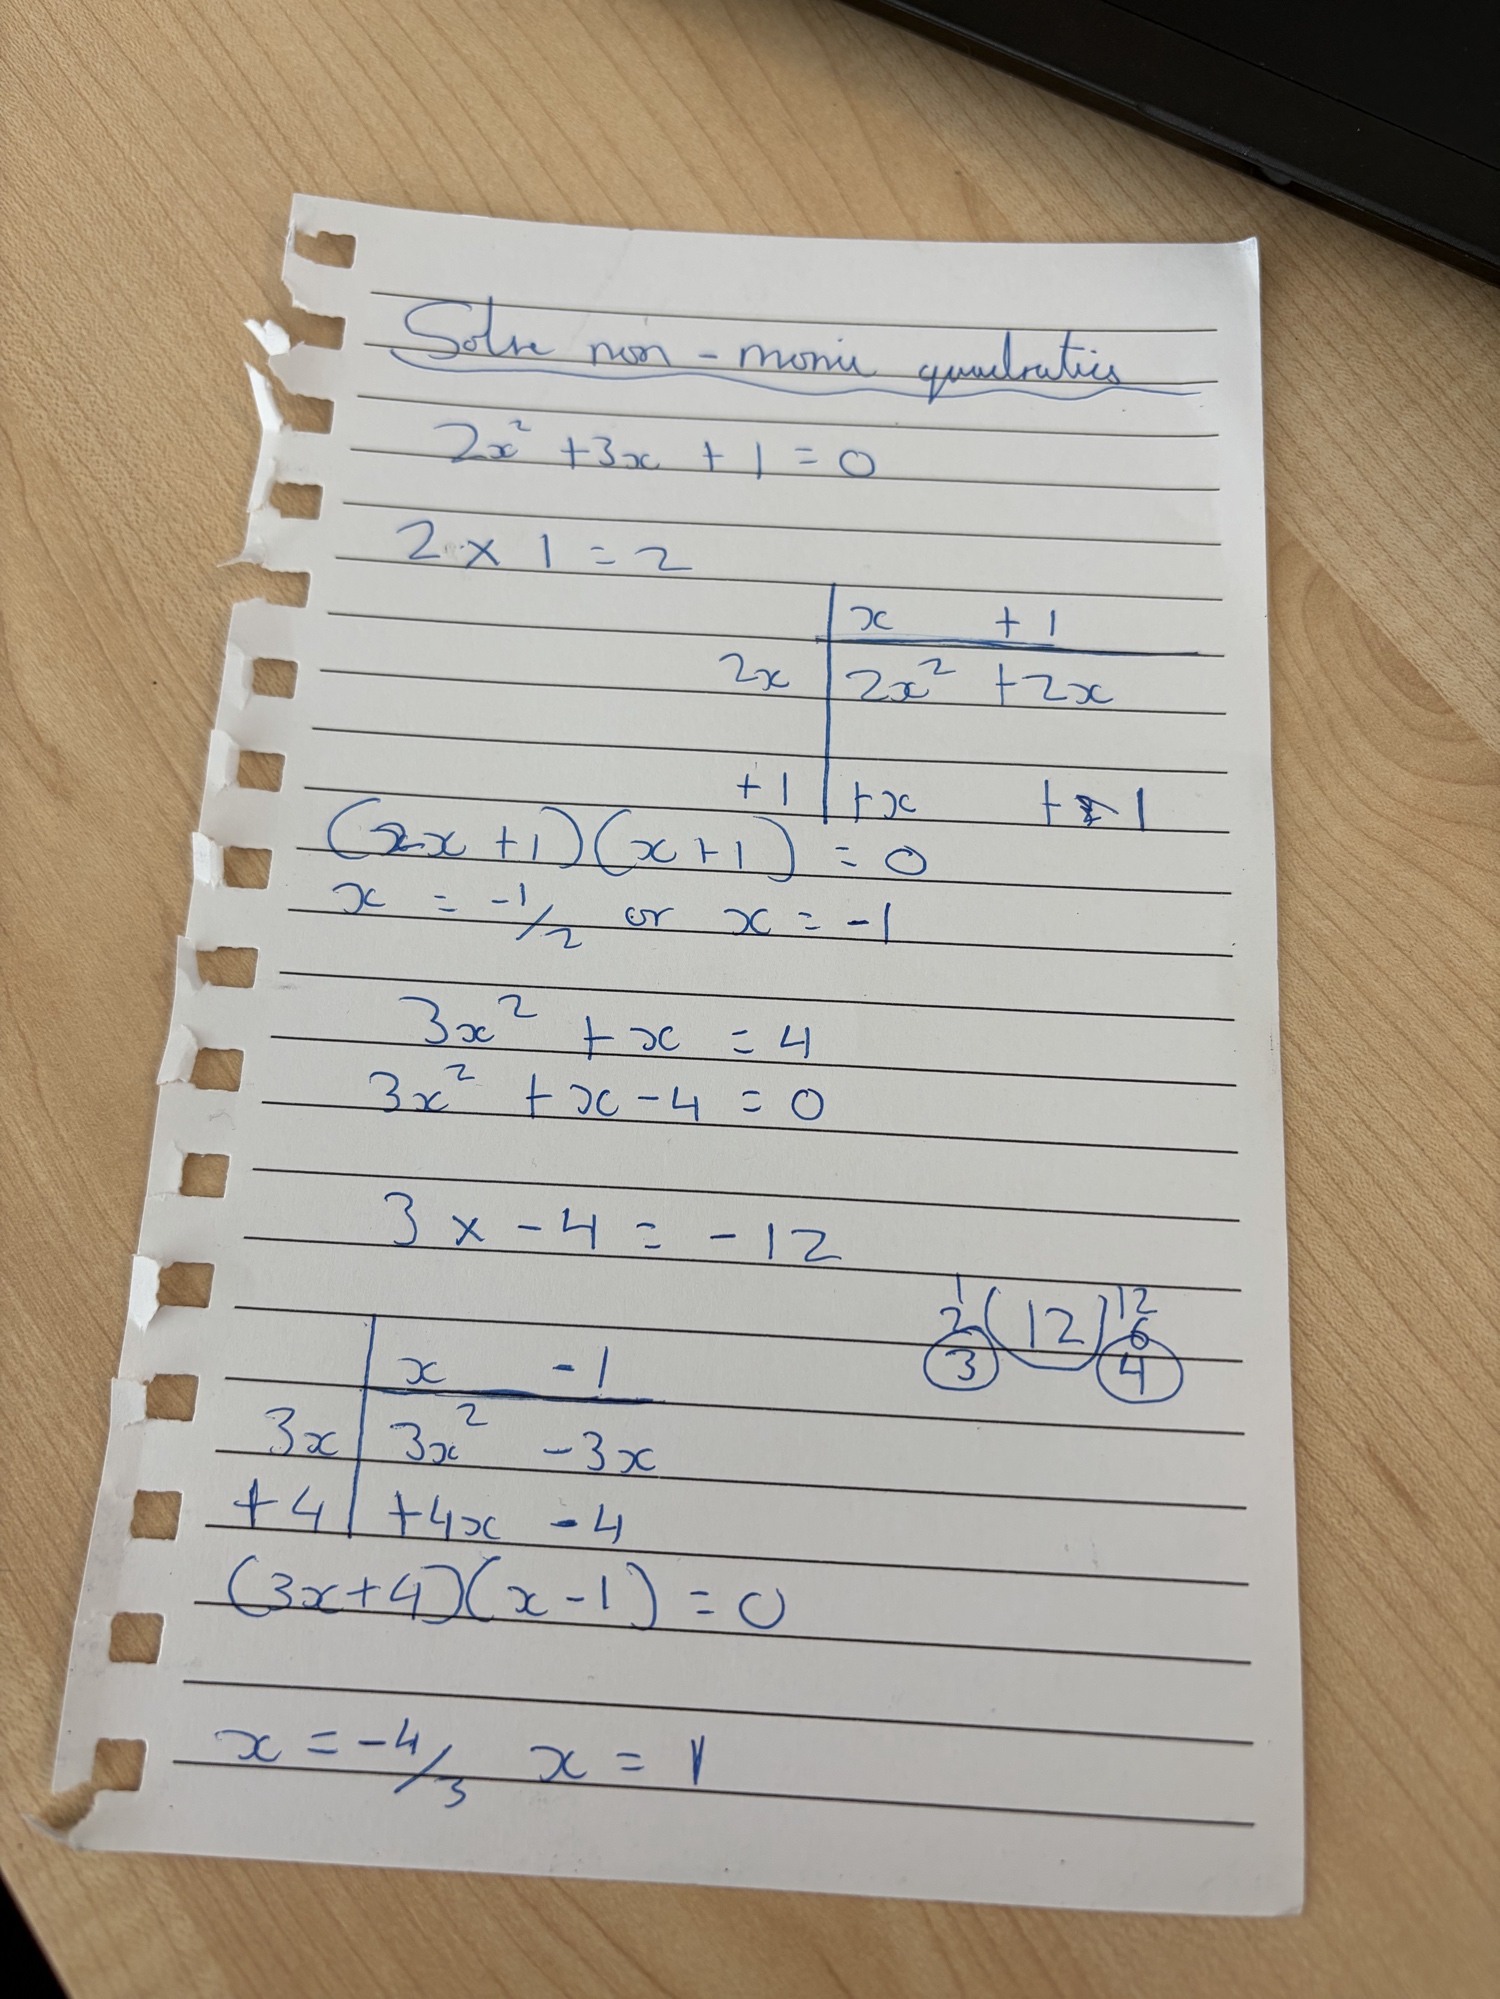 Solve non-monic quadratics
2x² + 3x + 1 = 0
2 x 1 = 2
x + 1
2x 2x² + 2x
+ 1 + x + 1
(2x + 1)(x + 1) = 0
x = -1/2 or x = -1
3x² + x = 4
3x² + x - 4 = 0
3 x - 4 = - 12
1 12
2 ( 12 ) 6
3 4
x - 1
3x 3x² - 3x
+ 4 + 4x - 4
(3x + 4)(x - 1) = 0
x = -4/3 x = 1